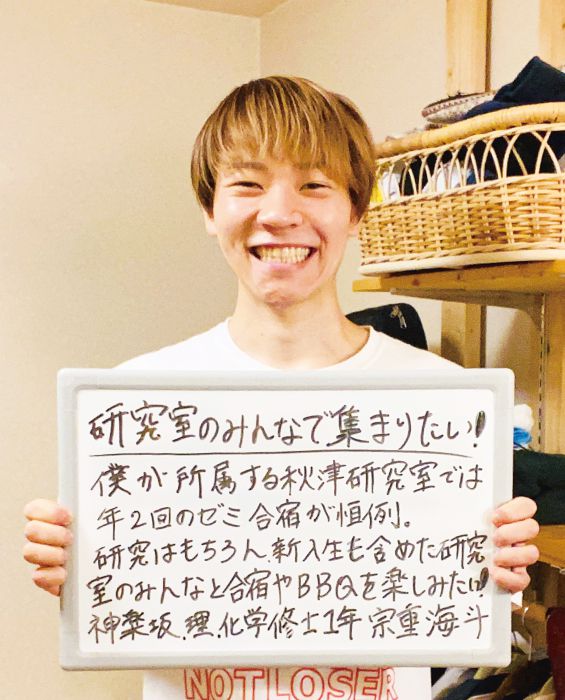 研究室のみんなで集まりたい!
僕が所属する秋津研究室では
年2回のゼミ合宿が恒例。
研究はもちろん、新入生も含めた研究
室のみんなと合宿やBBQを楽しみたい!
神楽坂.理.化学修士1年 宗重海斗
NOT LOSER